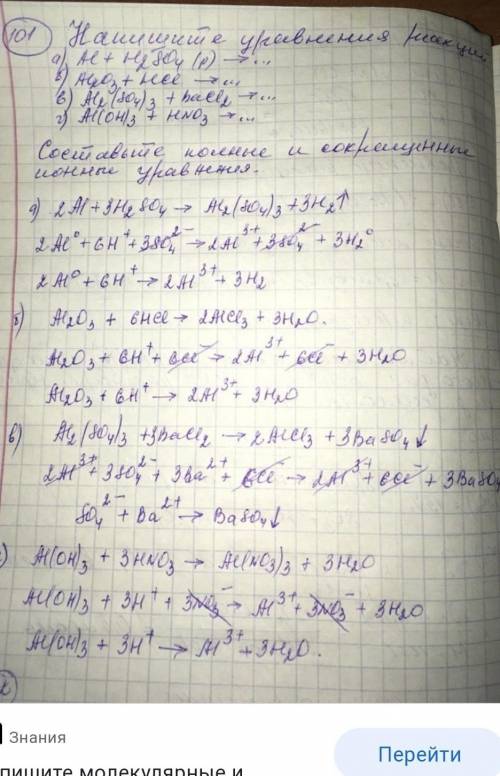 101 Напишите уравнения реакций
а) Al + H2SO4 (р) → ...
в) Al2O3 + HCl → ...
в) Al2(SO4)3 + BaCl2 → ...
г) Al(OH)3 + HNO3 → ...
Составьте полные и сокращенные
ионные уравнения.
а) 2Al + 3H2SO4 → Al2(SO4)3 + 3H2↑
2Al⁰ + 6H⁺ + 3SO4²⁻ → 2Al³⁺ + 3SO4²⁻ + 3H2⁰
2Al⁰ + 6H⁺ → 2Al³⁺ + 3H2
б) Al2O3 + 6HCl → 2AlCl3 + 3H2O.
Al2O3 + 6H⁺ + 6Cl⁻ → 2Al³⁺ + 6Cl⁻ + 3H2O
Al2O3 + 6H⁺ → 2Al³⁺ + 3H2O
в) Al2(SO4)3 + 3BaCl2 → 2AlCl3 + 3BaSO4↓
2Al³⁺ + 3SO4²⁻ + 3Ba²⁺ + 6Cl⁻ → 2Al³⁺ + 6Cl⁻ + 3BaSO4
SO4²⁻ + Ba²⁺ → BaSO4↓
) Al(OH)3 + 3HNO3 → Al(NO3)3 + 3H2O
Al(OH)3 + 3H⁺ + 3NO3⁻ → Al³⁺ + 3NO3⁻ + 3H2O
Al(OH)3 + 3H⁺ → Al³⁺ + 3H2O.
Знания
Перейти
пишите молекулярные и